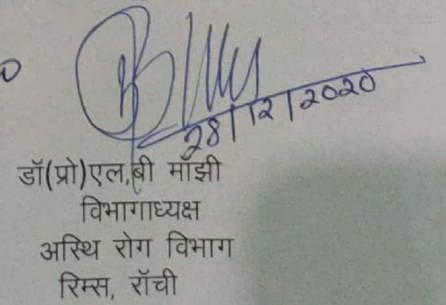 28/12/2020
डॉ(प्रो)एल.बी माँझी
विभागाध्यक्ष
अस्थि रोग विभाग
रिम्स, राँची